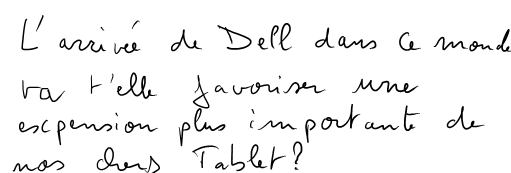 L'arrivée de Dell dans ce monde
va t'elle favoriser une
expension plus importante de
nos chers Tablet?